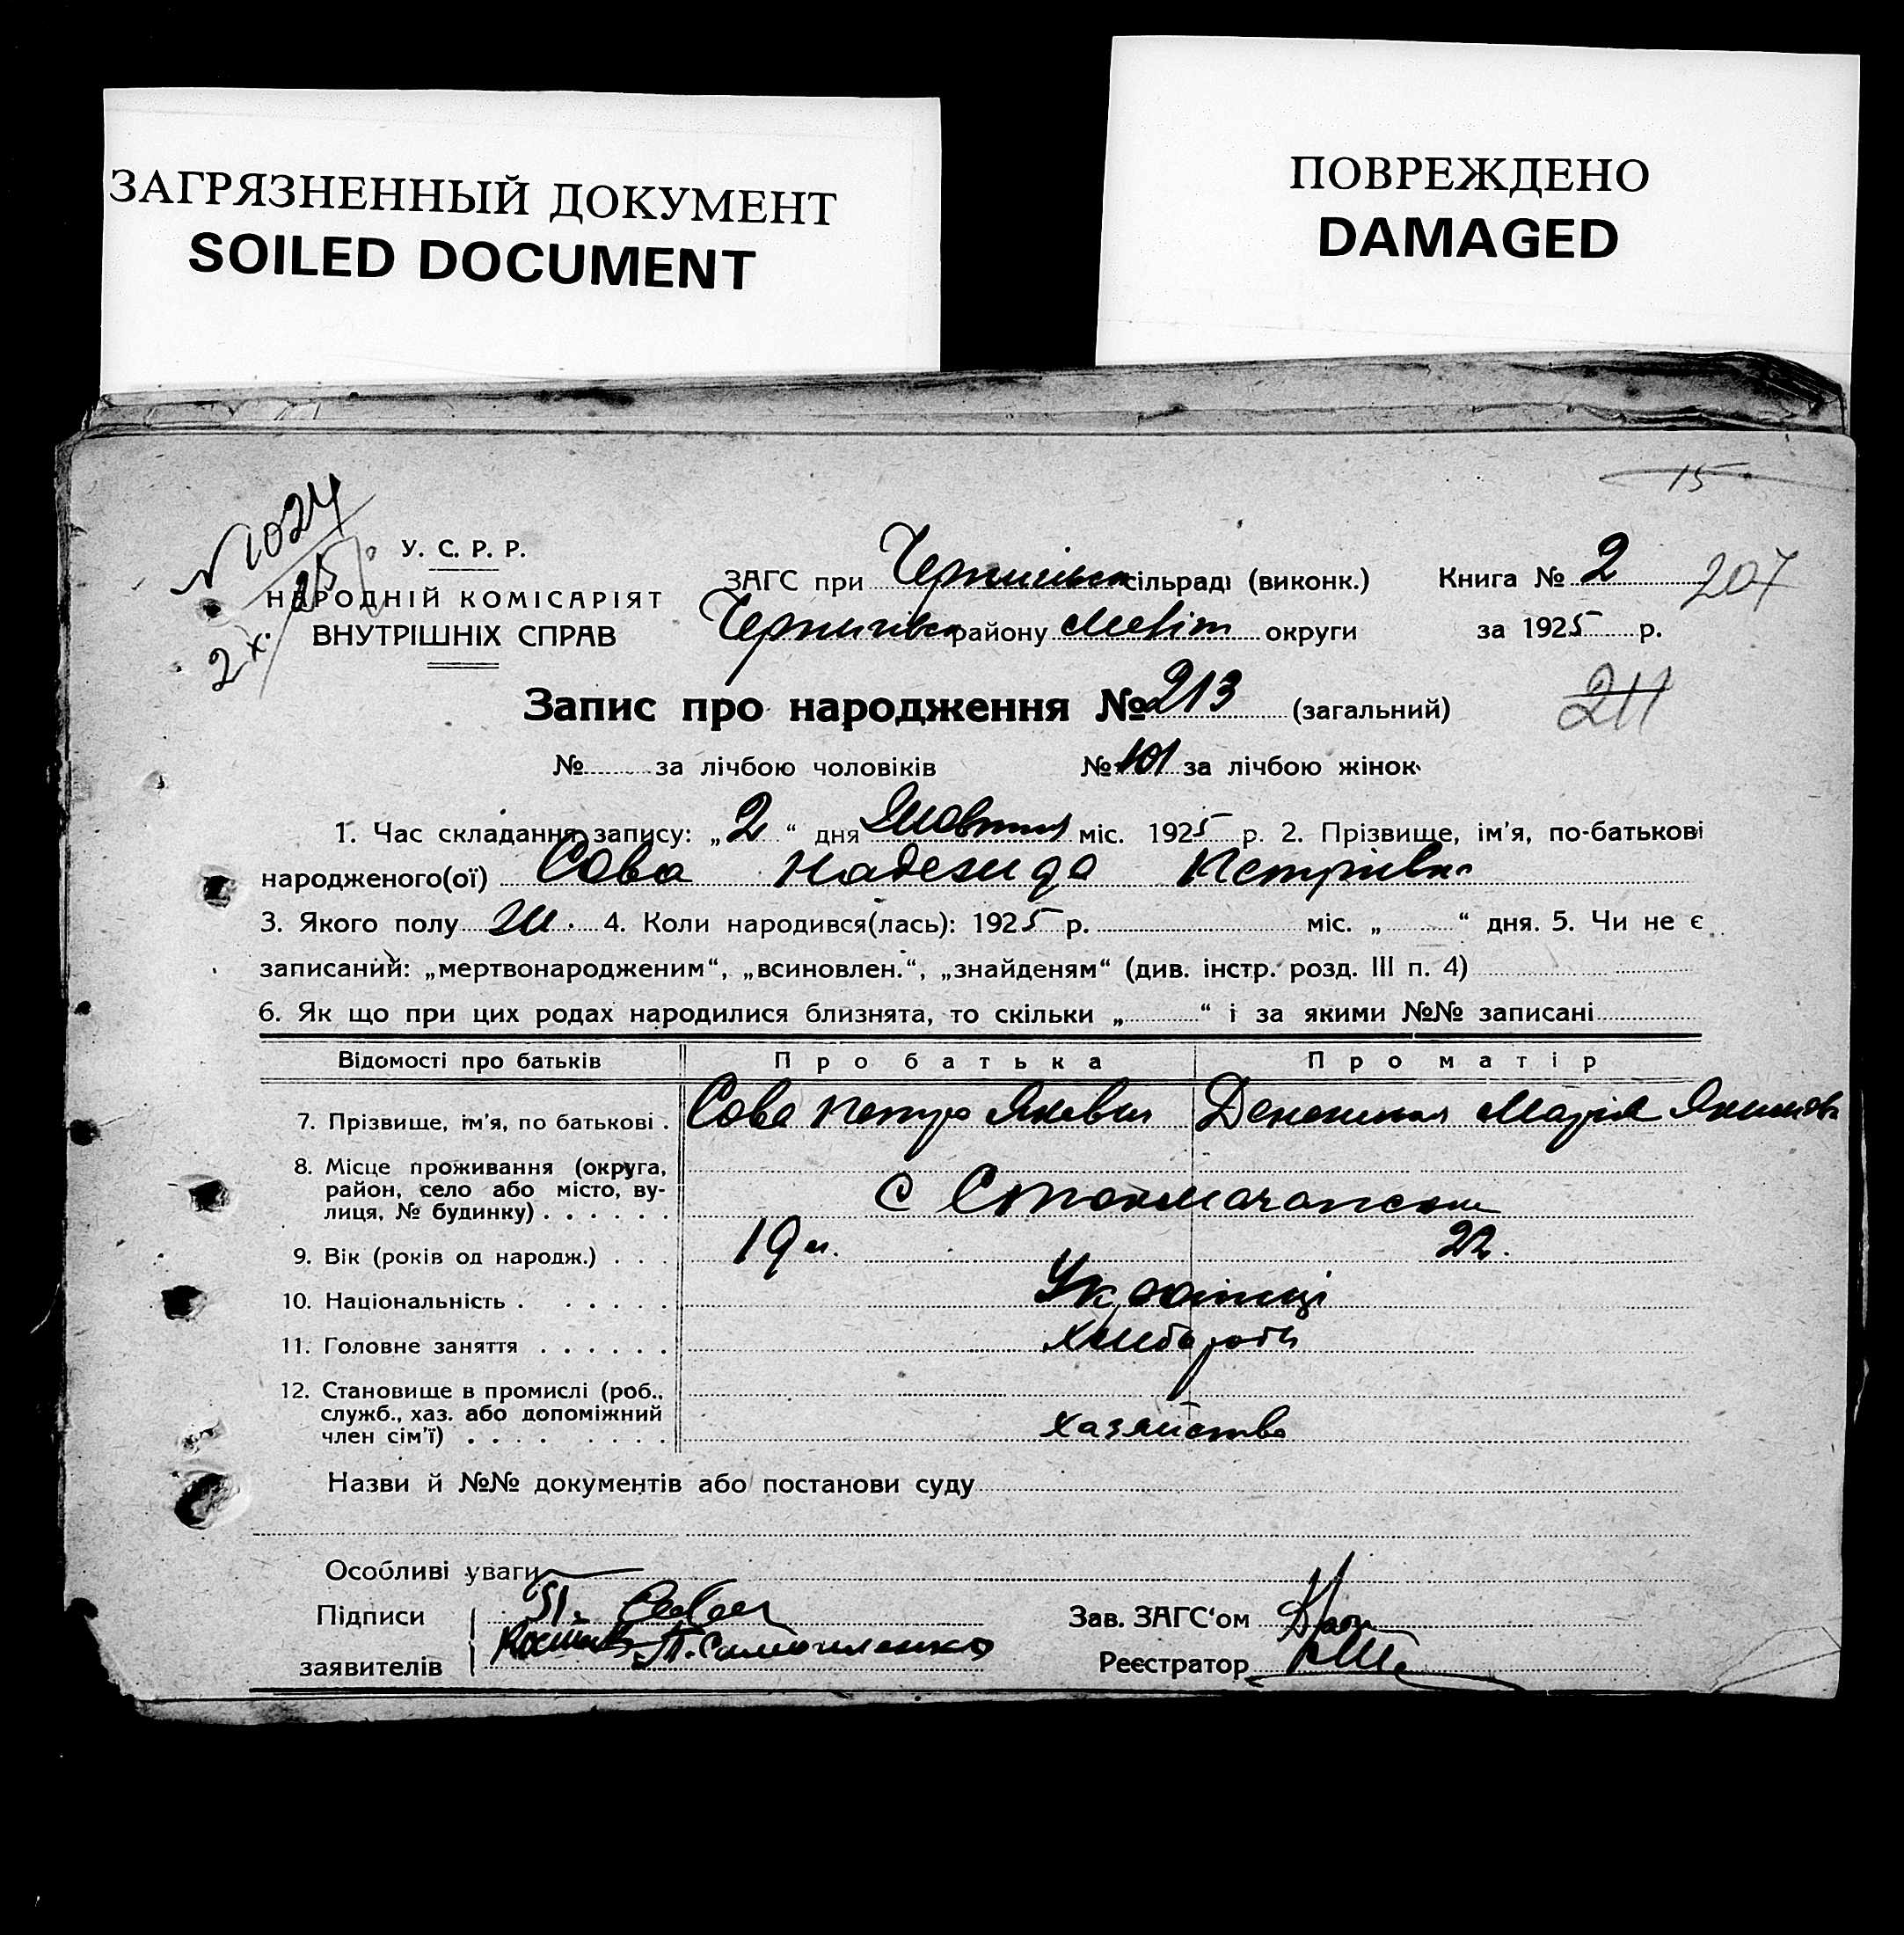 ЗАГРЯЗНЕННЫЙ ДОКУМЕНТ
SOILED DOCUMENT
ПОВРЕЖДЕНО
DAMAGED
15
№1024
2 х. 25
У. С. Р. Р.
НАРОДНІЙ КОМІСАРІЯТ
ВНУТРІШНІХ СПРАВ
ЗАГС при сільраді (виконк.)
району Меліт округи
Книга № 2 207
за 1925 р.
Запис про народження № 213 (загальний)
211
№ за лічбою чоловіків № 101 за лічбою жінок
1. Час складання запису: „2“ дня Жовтня міс. 1925 р. 2. Прізвище, ім'я, по-батькові
народженого(ої) Сова Надежда Петрівна
3. Якого полу ж. 4. Коли народився(лась): 1925 р. міс. „ “ дня. 5. Чи не є
записаний: „мертвонародженим“, „всиновлен.“, „знайденям“ (див. інстр. розд. III п. 4)
6. Як що при цих родах народилися близнята, то скільки „ “ і за якими №№ записані
Відомості про батьків Про батька Про матір
7. Прізвище, ім'я, по батькові . Сова Петро Марія
8. Місце проживання (округа,
район, село або місто, ву-
лиця, № будинку) . . . . . . с
9. Вік (років од народж.) . . . 19 22.
10. Національність . . . . . . Українці
11. Головне заняття . . . . . . хлібороби
12. Становище в промислі (роб.,
служб., хаз. або допоміжний
член сім'ї) . . . . . . . . . хазяйство
Назви й №№ документів або постанови суду
Особливі уваги
Підписи
заявителів
Зав. ЗАГС'ом
Реєстратор